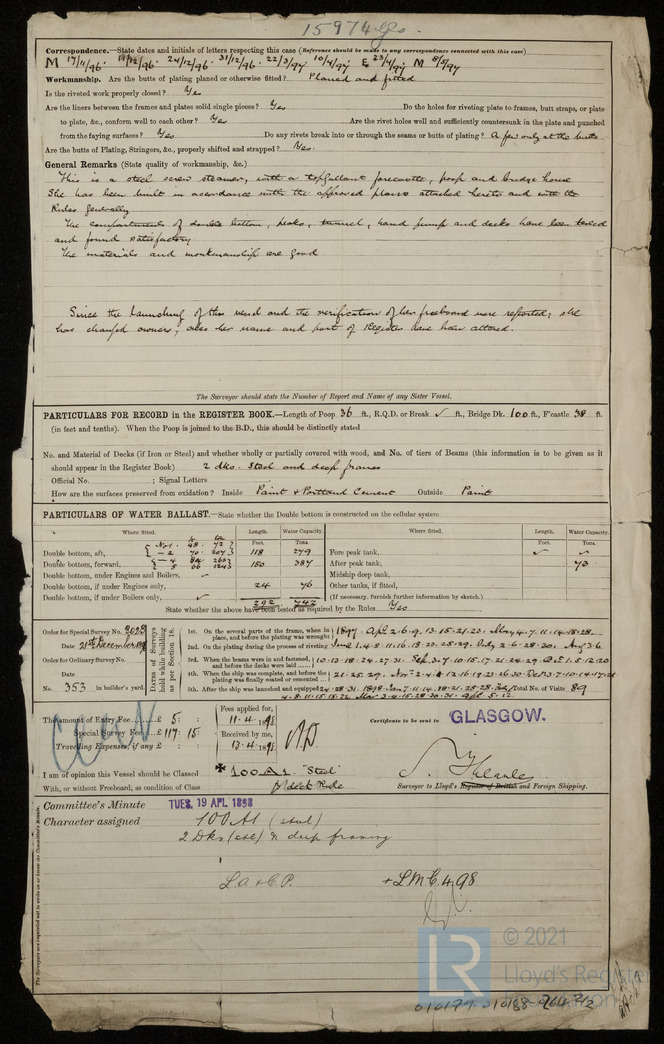 15974 Gls.
Correspondence.—State dates and initials of letters respecting this case (Reference should be made to any correspondence connected with this case)
M 17/11/96. 11/12/96. 24/12/96. 31/12/96. 22/3/97 10/4/97. E 23/4/97. M 8/5/97
Workmanship. Are the butts of plating planed or otherwise fitted? Planed and fitted
Is the riveted work properly closed? Yes
Are the liners between the frames and plates solid single pieces? Yes Do the holes for riveting plate to frames, butt straps, or plate
to plate, &c., conform well to each other? Yes Are the rivet holes well and sufficiently countersunk in the plate and punched
from the faying surfaces? Yes Do any rivets break into or through the seams or butts of plating? A few only at the butts
Are the butts of Plating, Stringers, &c., properly shifted and strapped? Yes.
General Remarks (State quality of workmanship, &c.)
This is a steel screw steamer, with a topgallant forecastle, poop and bridge house
She has been built in accordance with the approved plans attached hereto and with the
Rules generally
The compartments of double bottom, peaks, tunnel, hand pump and decks have been tested
and found satisfactory
The materials and workmanship are good
Since the launching of this vessel and the verification of her freeboard were reported, she
has changed owners, also her name and port of Register have been altered.
The Surveyor should state the Number of Report and Name of any Sister Vessel.
PARTICULARS FOR RECORD in the REGISTER BOOK.—Length of Poop 36 ft., R.Q.D. or Break ✓ ft., Bridge Dk. 100 ft., F'castle 38 ft.
(in feet and tenths). When the Poop is joined to the B.D., this should be distinctly stated
No. and Material of Decks (if Iron or Steel) and whether wholly or partially covered with wood, and No. of tiers of Beams (this information is to be given as it
should appear in the Register Book) 2 dks. Steel and deep frames
Official No. ; Signal Letters
How are the surfaces preserved from oxidation? Inside Paint & Portland Cement Outside Paint
PARTICULARS OF WATER BALLAST.—State whether the Double bottom is constructed on the cellular system
Where fitted. Length. Water Capacity. Where fitted. Length. Water Capacity.
Feet. Tons. Feet. Tons.
Double bottom, aft, 118 279 Fore peak tank, ✓ ✓
Double bottom, forward, 150 387 After peak tank, 73
Double bottom, under Engines and Boilers, ✓ Midship deep tank,
Double bottom, if under Engines only, 24 76 Other tanks, if fitted,
Double bottom, if under Boilers only, ✓ (If necessary, furnish further information by sketch.)
292 742
State whether the above have been tested as required by the Rules Yes
Order for Special Survey No. 2029
Date 21st December
Order for Ordinary Survey No.
Date
No. 353 in builder's yard.
Dates of Surveys held while building as per Section 18.
1st. On the several parts of the frame, when in place, and before the plating was wrought
1897. Apl. 2.6.9.13.15.21.23. May 4.7.11.14.18.28.
2nd. On the plating during the process of riveting June 1.4.8.11.16.18.23.25.29. July 2.6.28.30. Aug 3.6
3rd. When the beams were in and fastened, and before the decks were laid
10.13.18.24.27.31 Sep. 3.7.10.15.17.21.24.29. Oct 1.5.12.20
4th. When the ship was complete, and before the plating was finally coated or cemented
5th. After the vessel was launched and equipped Total No. of Visits 89
The amount of Entry Fee £ 5 :
Special Survey Fee £ 117 : 15 :
Travelling Expenses, if any £
Fees applied for,
11.4.1898
Received by me,
13.4.1898
Certificate to be sent to GLASGOW.
I am of opinion this Vessel should be Classed ✠ 100 A1. "Steel"
With, or without Freeboard, as condition of Class
Surveyor to Lloyd's Register of British and Foreign Shipping.
Committee's Minute TUES. 19 APL 1898
Character assigned 100 A1 (steel)
2 Dks (stl) & deep framing
L.A. & C.P. + LMC. 4.98
The Surveyors are requested not to write on or below the Committee's Minute.
LR
© 2021
Lloyd's Register
Foundation
010179-010188-0264 2/2